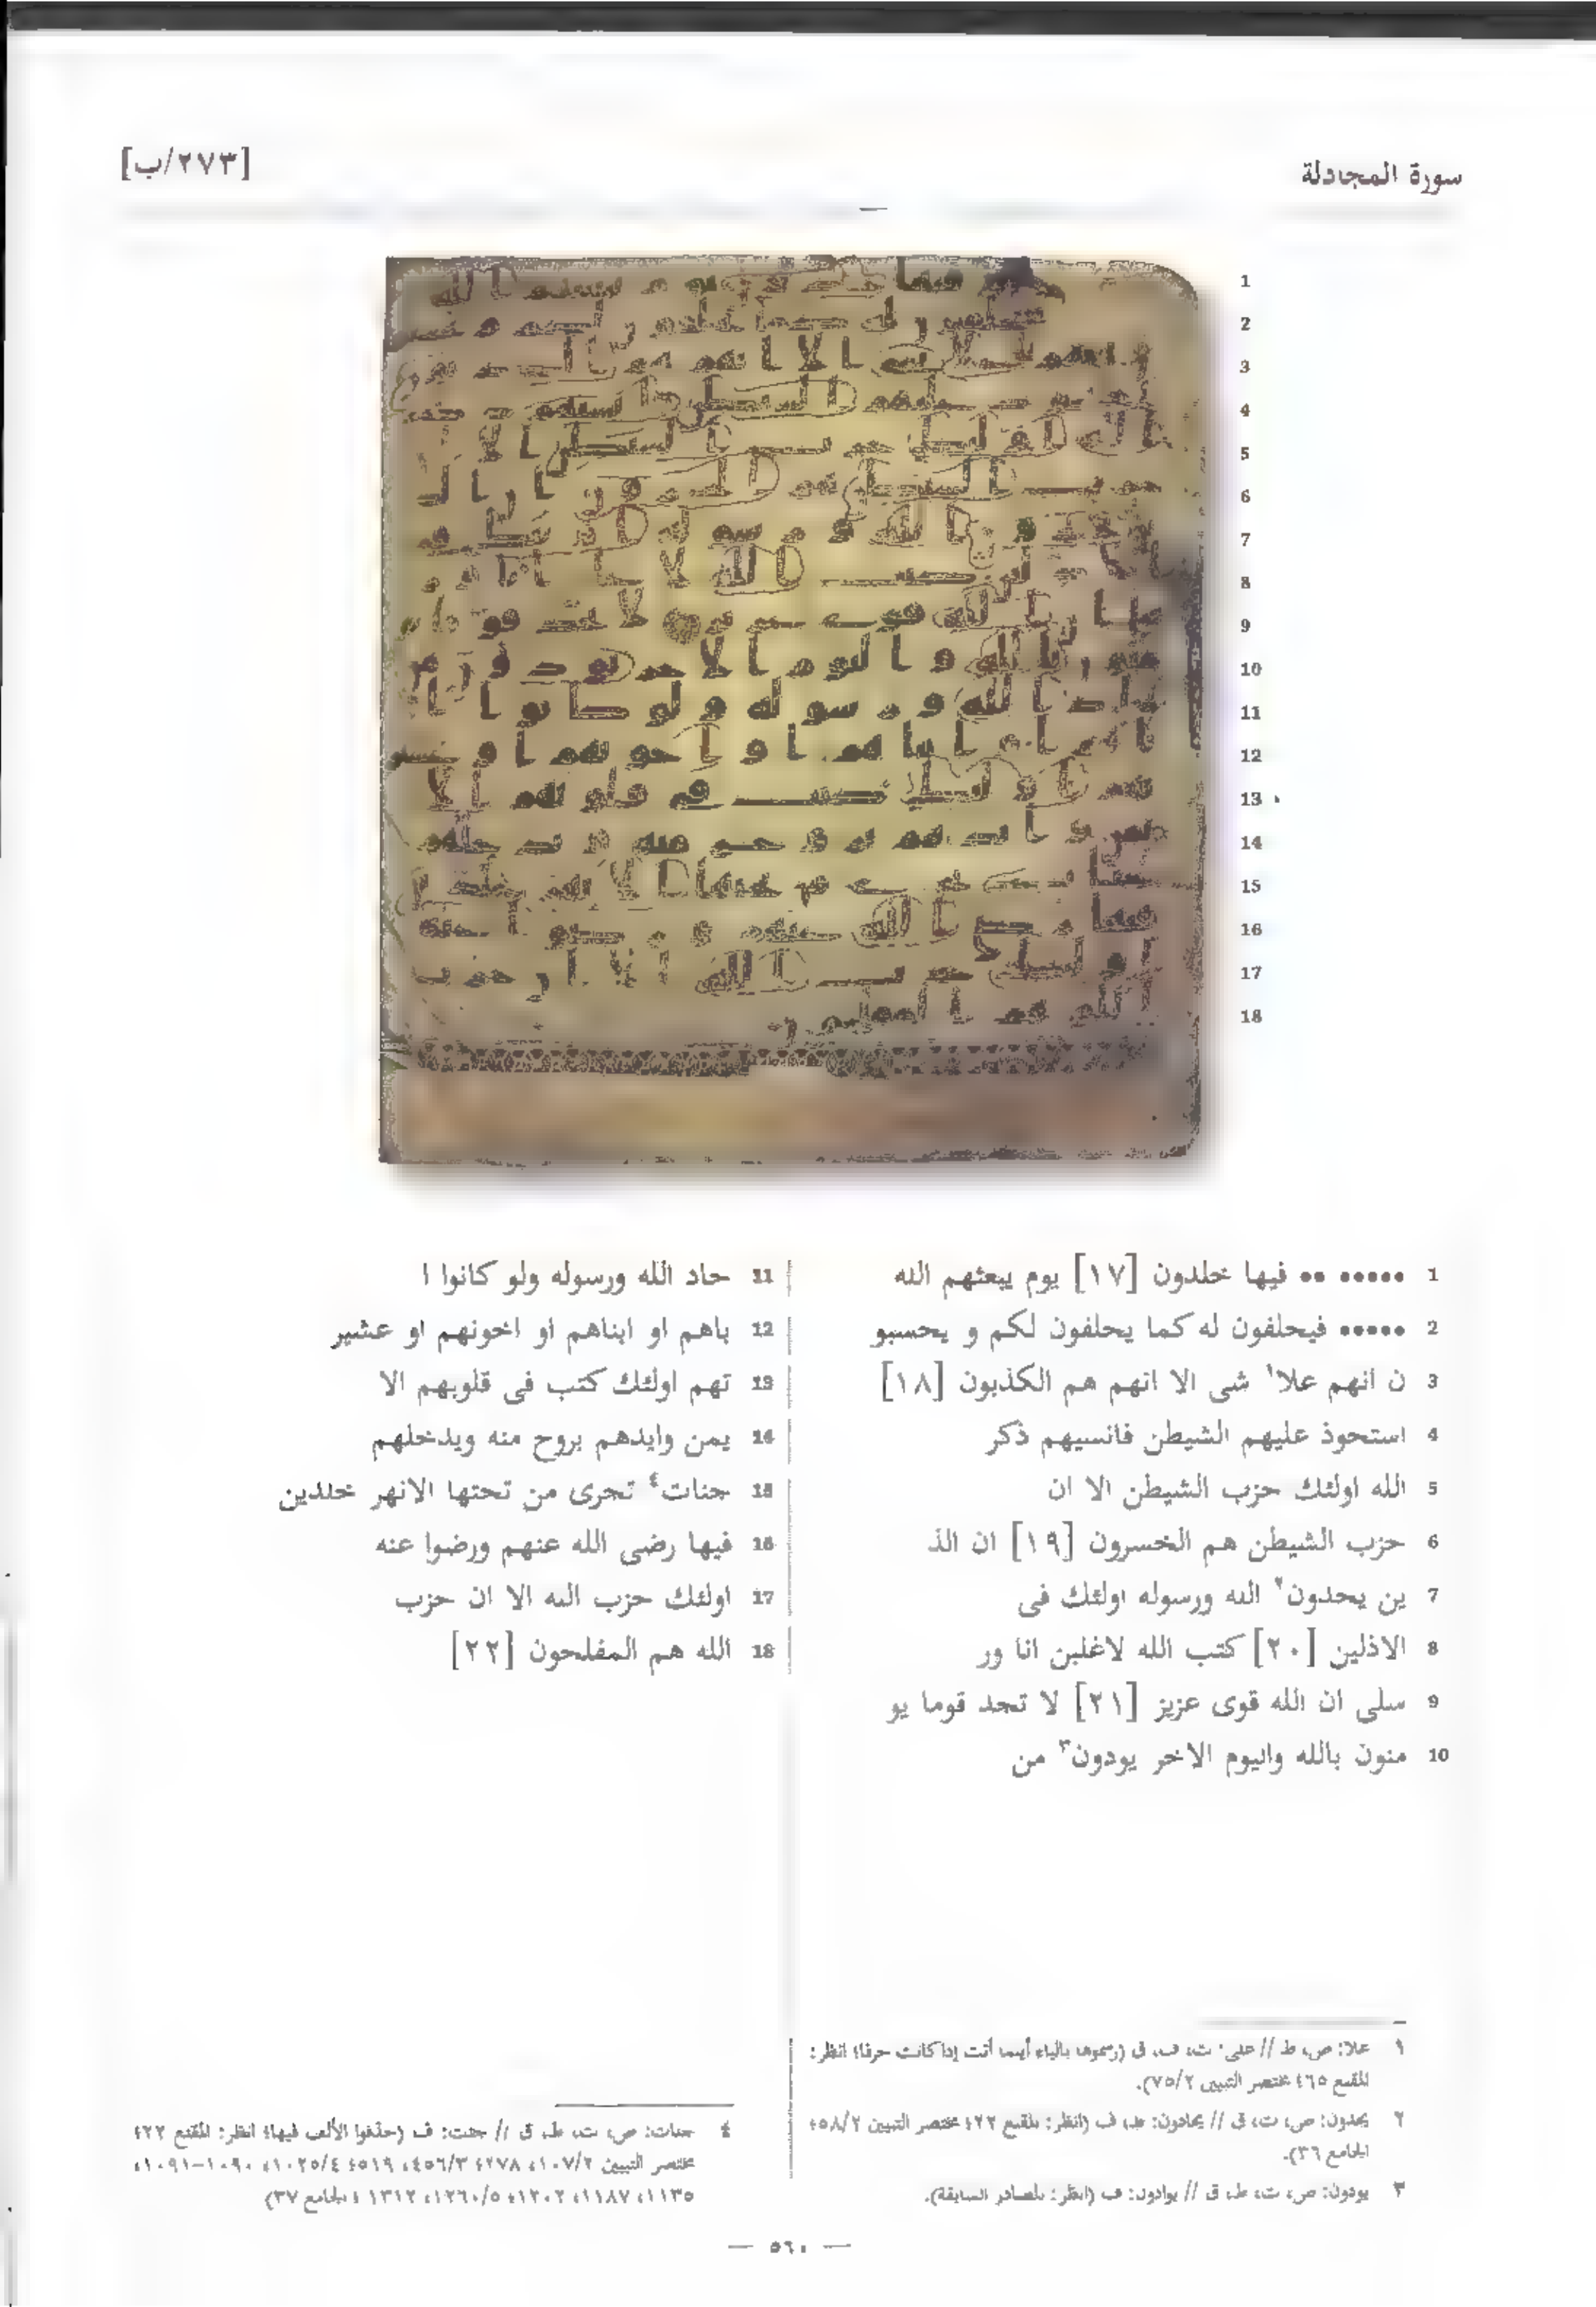 سورة المجادلة
[٢٧٣/ب]
1 ••••• •• فيها خلدون [١٧] يوم يبعثهم الله
2 ••••• فيحلفون له كما يحلفون لكم و يحسبو
3 ن انهم علا١ شى الا انهم هم الكذبون [١٨]
4 استحوذ عليهم الشيطن فانسيهم ذكر
5 الله اولئك حزب الشيطن الا ان
6 حزب الشيطن هم الخسرون [١٩] ان الذ
7 ين يحدون٢ الله ورسوله اولئك فى
8 الاذلين [٢٠] كتب الله لاغلبن انا ور
9 سلى ان الله قوى عزيز [٢١] لا تجد قوما يو
10 منون بالله واليوم الاخر يودون٣ من
11 حاد الله ورسوله ولو كانوا ا
12 باهم او ابناهم او اخونهم او عشير
13 تهم اولئك كتب فى قلوبهم الا
14 يمن وايدهم بروح منه ويدخلهم
15 جنات٤ تجرى من تحتها الانهر خلدين
16 فيها رضى الله عنهم ورضوا عنه
17 اولئك حزب الله الا ان حزب
18 الله هم المفلحون [٢٢]
١ علا: ص، ط // على: ت، ف، ق (رسموها بالياء أينما أتت إذا كانت حرفا؛ انظر:
المقنع ٤٦٥ مختصر التبيين ٧٥/٢).
٢ يحدون: ص، ت، ق // يحادون: ط، ف (انظر: المقنع ٤٢٢ مختصر التبيين ٥٨/٢؛
الجامع ٣٦).
٣ يودون: ص، ت، ط، ق // يوادون: ف (انظر: المصادر السابقة).
٤ جنات: ص، ت، ط، ق // جنت: ف (حذفوا الألف فيها؛ انظر: المقنع ٤٢٢
مختصر التبيين ١٠٧/٢، ٢٧٨؛ ٤٥٦/٣، ٥١٩؛ ١٠٢٥/٤، ١٠٩٠-١٠٩١،
١١٣٥، ١١٨٧، ١٢٠٢؛ ١٢٦٠/٥، ١٣١٢؛ الجامع ٣٧)
— ٥٦٠ —